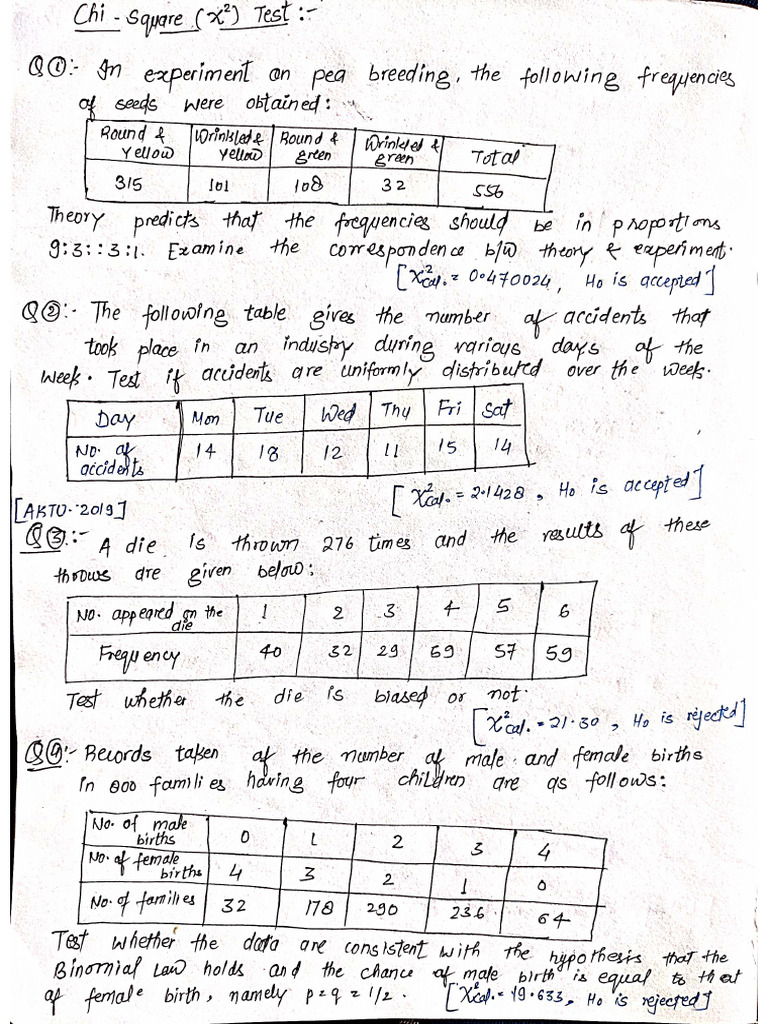 Chi-Square (χ²) Test :-
Q①:- In experiment on pea breeding, the following frequencies
of seeds were obtained:
Round & Yellow | Wrinkled & Yellow | Round & green | Wrinkled & green | Total
315 | 101 | 108 | 32 | 556
Theory predicts that the frequencies should be in proportions
9:3::3:1. Examine the correspondence b/w theory & experiment.
[χ²cal. = 0.470024, H0 is accepted]
Q②:- The following table gives the number of accidents that
took place in an industry during various days of the
week. Test if accidents are uniformly distributed over the week.
Day | Mon | Tue | Wed | Thu | Fri | Sat
No. of accidents | 14 | 18 | 12 | 11 | 15 | 14
[χ²cal. = 2.1428, H0 is accepted]
[AKTU-2019]
Q③:- A die is thrown 276 times and the results of these
throws are given below:
No. appeared on the die | 1 | 2 | 3 | 4 | 5 | 6
Frequency | 40 | 32 | 29 | 59 | 57 | 59
Test whether the die is biased or not.
[χ²cal. = 21.30, H0 is rejected]
Q④:- Records taken of the number of male and female births
in 800 families having four children are as follows:
No. of male births | 0 | 1 | 2 | 3 | 4
No. of female births | 4 | 3 | 2 | 1 | 0
No. of families | 32 | 178 | 290 | 236 | 64
Test whether the data are consistent with the hypothesis that the
Binomial Law holds and the chance of male birth is equal to that
of female birth, namely p=q=1/2. [χ²cal. = 19.633, H0 is rejected]